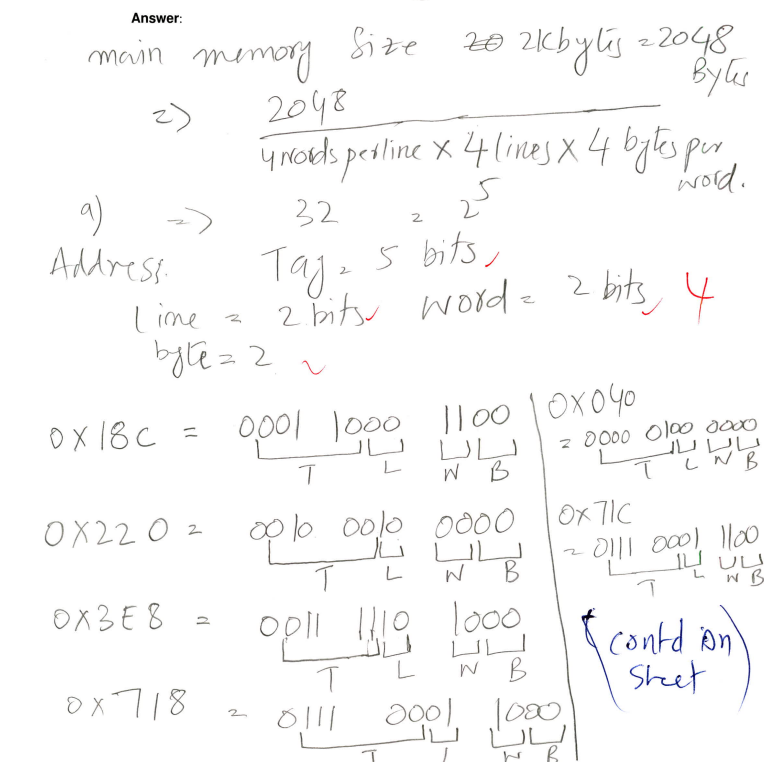 Answer:
main memory Size 2Kbytes = 2048 Bytes
=> 2048
4 words per line x 4 lines x 4 bytes per word.
a) => 32 = 2^5
Address. Tag = 5 bits,
Line = 2 bits word = 2 bits, 4
byte = 2
0x18C = 0001 1000 1100
T L W B
0x220 = 0010 0010 0000
T L W B
0x3E8 = 0011 1110 1000
T L W B
0x718 = 0111 0001 1000
T L W B
0x040
= 0000 0100 0000
T L W B
0x71C
= 0111 0001 1100
T L W B
(contd on Sheet)